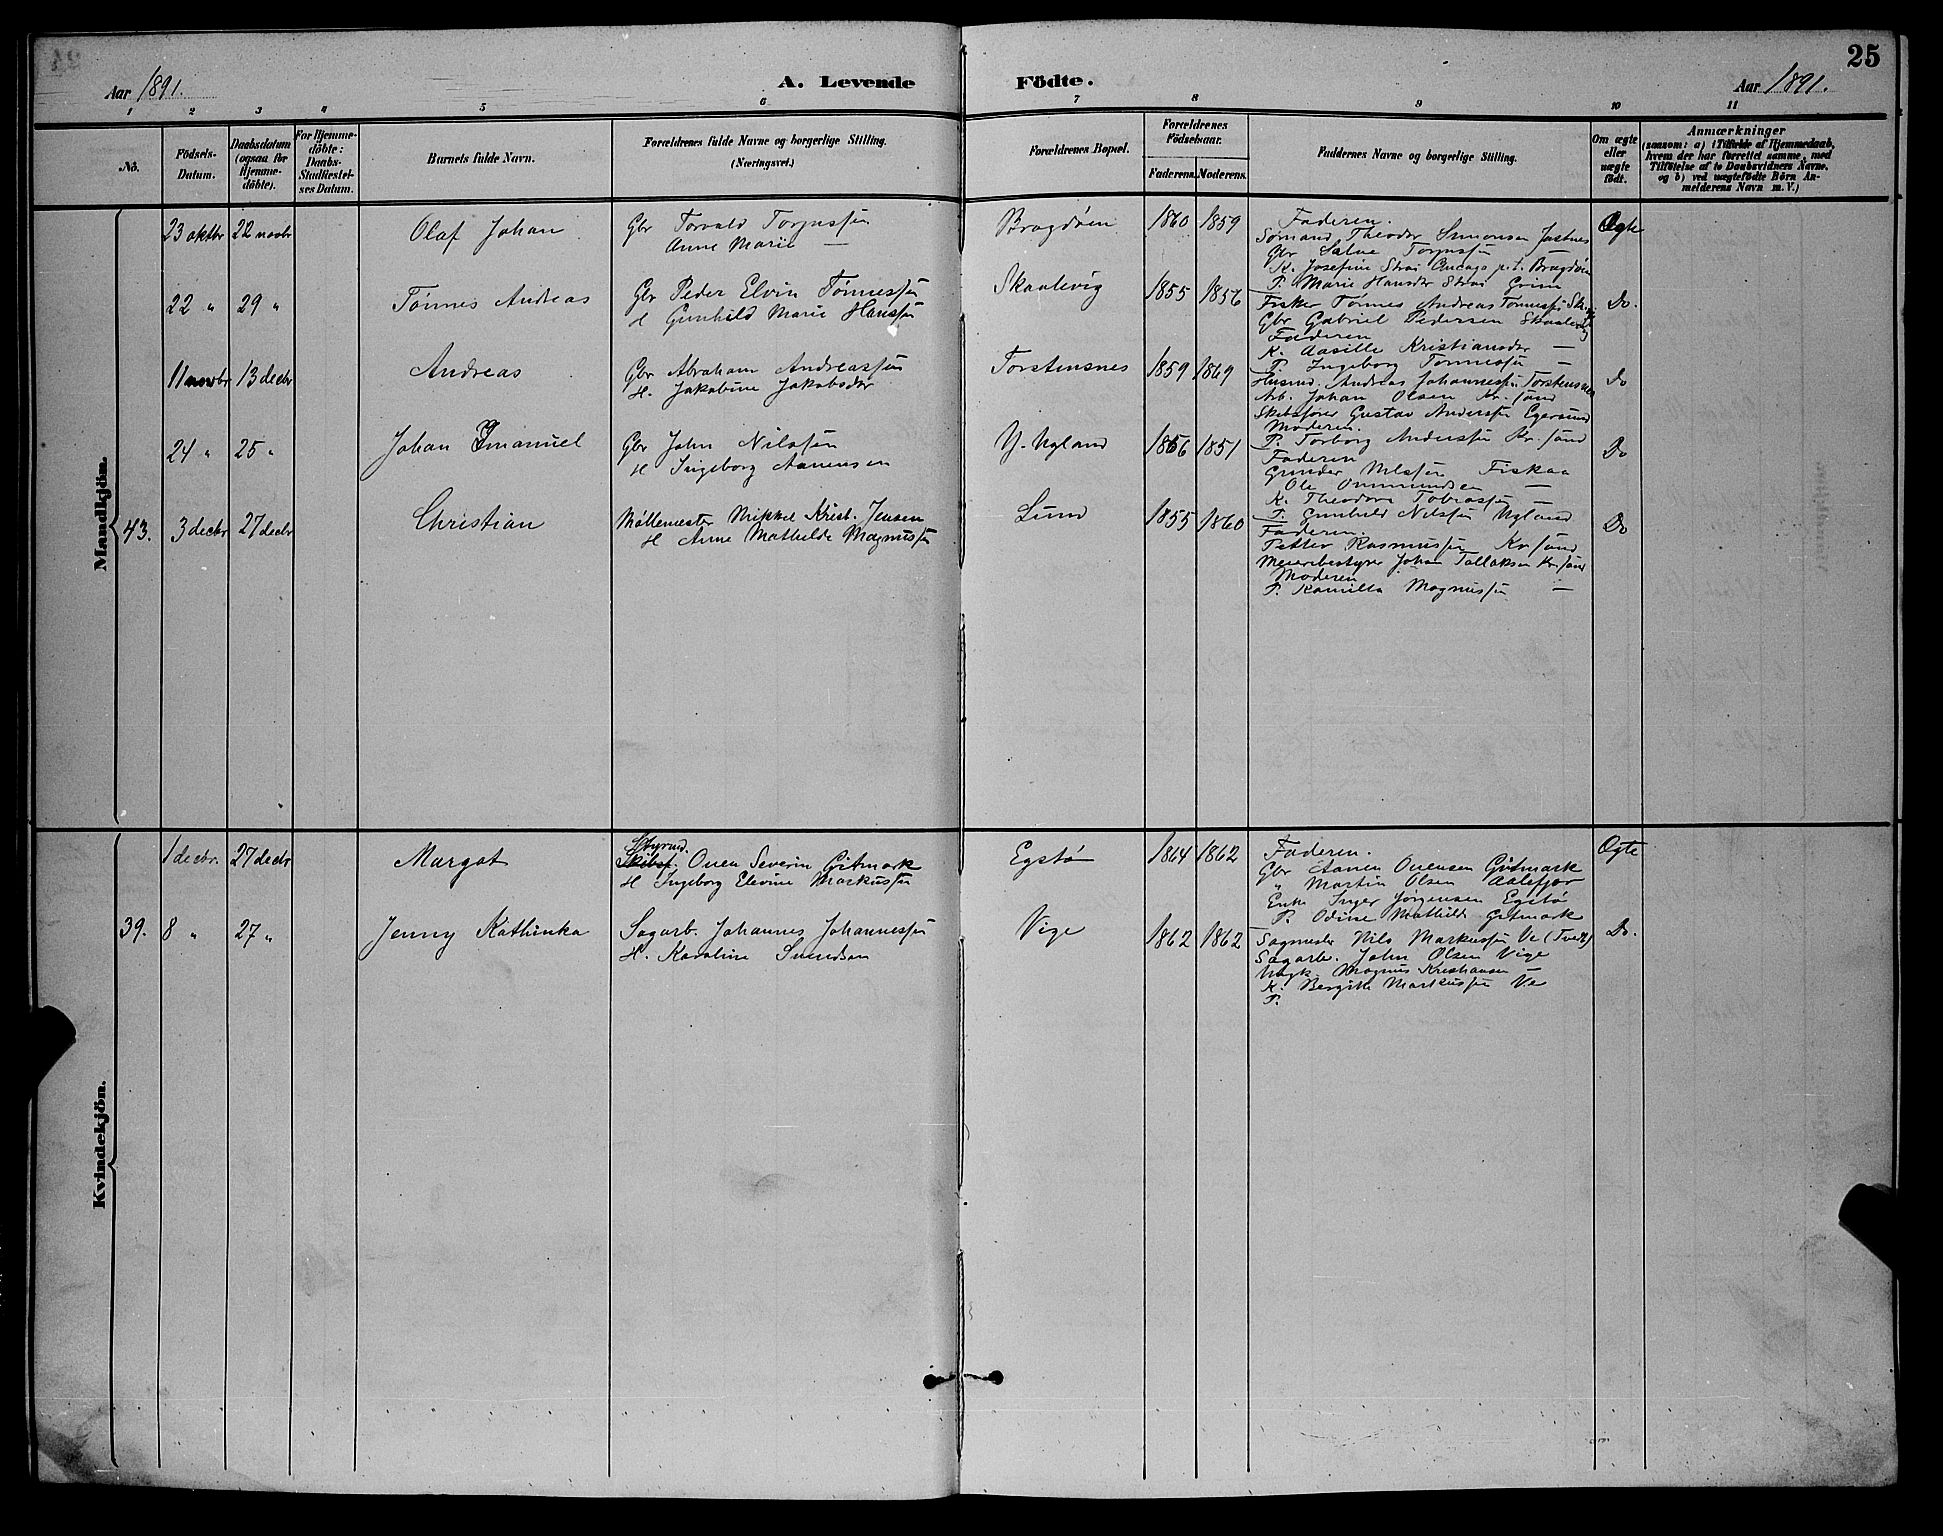 25
Aar 1891.
A. Levende Födte.
Aar 1891.
1 2 3 4 5 6 7 8 9 10 11
No.
Födsels-
Datum.
Daabsdatum
(ogsaa for
Hjemme-
döbte).
For Hjemme-
döbte:
Daabs-
Stadfæstel-
ses Datum.
Barnets fulde Navn.
Forældrenes fulde Navne og borgerlige Stilling.
(Næringsvei.)
Forældrenes Bopæl.
Forældrenes
Födselsaar.
Faderens. Moderens.
Faddernes Navne og borgerlige Stilling.
Om ægte
eller
uægte
födt.
Anmærkninger
(saasom: a) i Tilfælde af Hjemmedaab,
hvem der har forrettet samme, med
Tilföielse af to Daabsvidners Navne,
og b) ved uægtefödte Börn An-
melderens Navn m. V.)
Mandkjön.
23 oktbr 22 novbr Olaf Johan
Gbr Torvald Torjussen
Anne Marie —
Bragdøen 1860 1859
Faderen.
Sømand Theodor Simonsen Justnes
Gbr Salve Torjussen —
K. Josefine Strai Chicago p.t. Bragdøen
P. Marie Hansdr Strai Grim
Ægte
22 " 29 " Tønnes Andreas
Gbr Peder Elvin Tønnessen
H Gunhild Marie Hanssen
Skaalevig 1855 1856
Fisker Tønnes Andreas Tønnessen
Gbr Gabriel Pedersen Skaalevig
Faderen
K. Aasille Kristiansdr —
P. Ingeborg Tønnessen —
Do.
11 novbr 13 decbr Andreas
Gbr Abraham Andreassen
H. Jakobine Jakobsdr
Torstensnes 1859 1869
Husmd. Andreas Johannessen Torstensnes
Arb. Johan Olsen Kr.sand
Skibsfører Gustav Anderssen Egersund
Moderen.
P. Torborg Anderssen Kr.sand
Do
24 " 25 " Johan Emanuel
Gbr John Nilssen
H Ingeborg Aanensen
Y. Nyland 1856 1851
Faderen
Gunder Nilssen Fiskaa
Ole Ommundsen —
K. Theodora Tobiassen —
P. Gunhild Nilssen Nyland
Do
43. 3 decbr 27 decbr Christian
Møllemester Mikkel Krist. Jensen
H Anne Mathilde Magnussen
Lund 1855 1860
Faderen.
Petter Rasmussen Kr.sand
Meieribestyrer Johan Tallaksen Kr.sand
Moderen
P. Kamilla Magnussen —
Do
Kvindekjön.
1 decbr. 27 decbr Margot
Styrmd.
Skibsf. Onen Severin Gitmark
H Ingeborg Elevine Markussen
Egstø 1864 1862
Faderen.
Gbr Aanen Onensen Gitmark
" Martin Olsen Aalefjær
Enke Inger Jørgensen Egstø
P. Odine Mathilde Gitmark
Ægte
39. 8 " 27 " Jenny Kathinka
Sagarb. Johannes Johannessen
H. Karoline Svendsen
Vige 1862 1862
Sagmester Nils Markussen Ve (Tvedt)
Sagarb. John Olsen Vige
Ungk. Magnus Kristiansen —
K. Bergitte Markussen Ve
P.
Do.